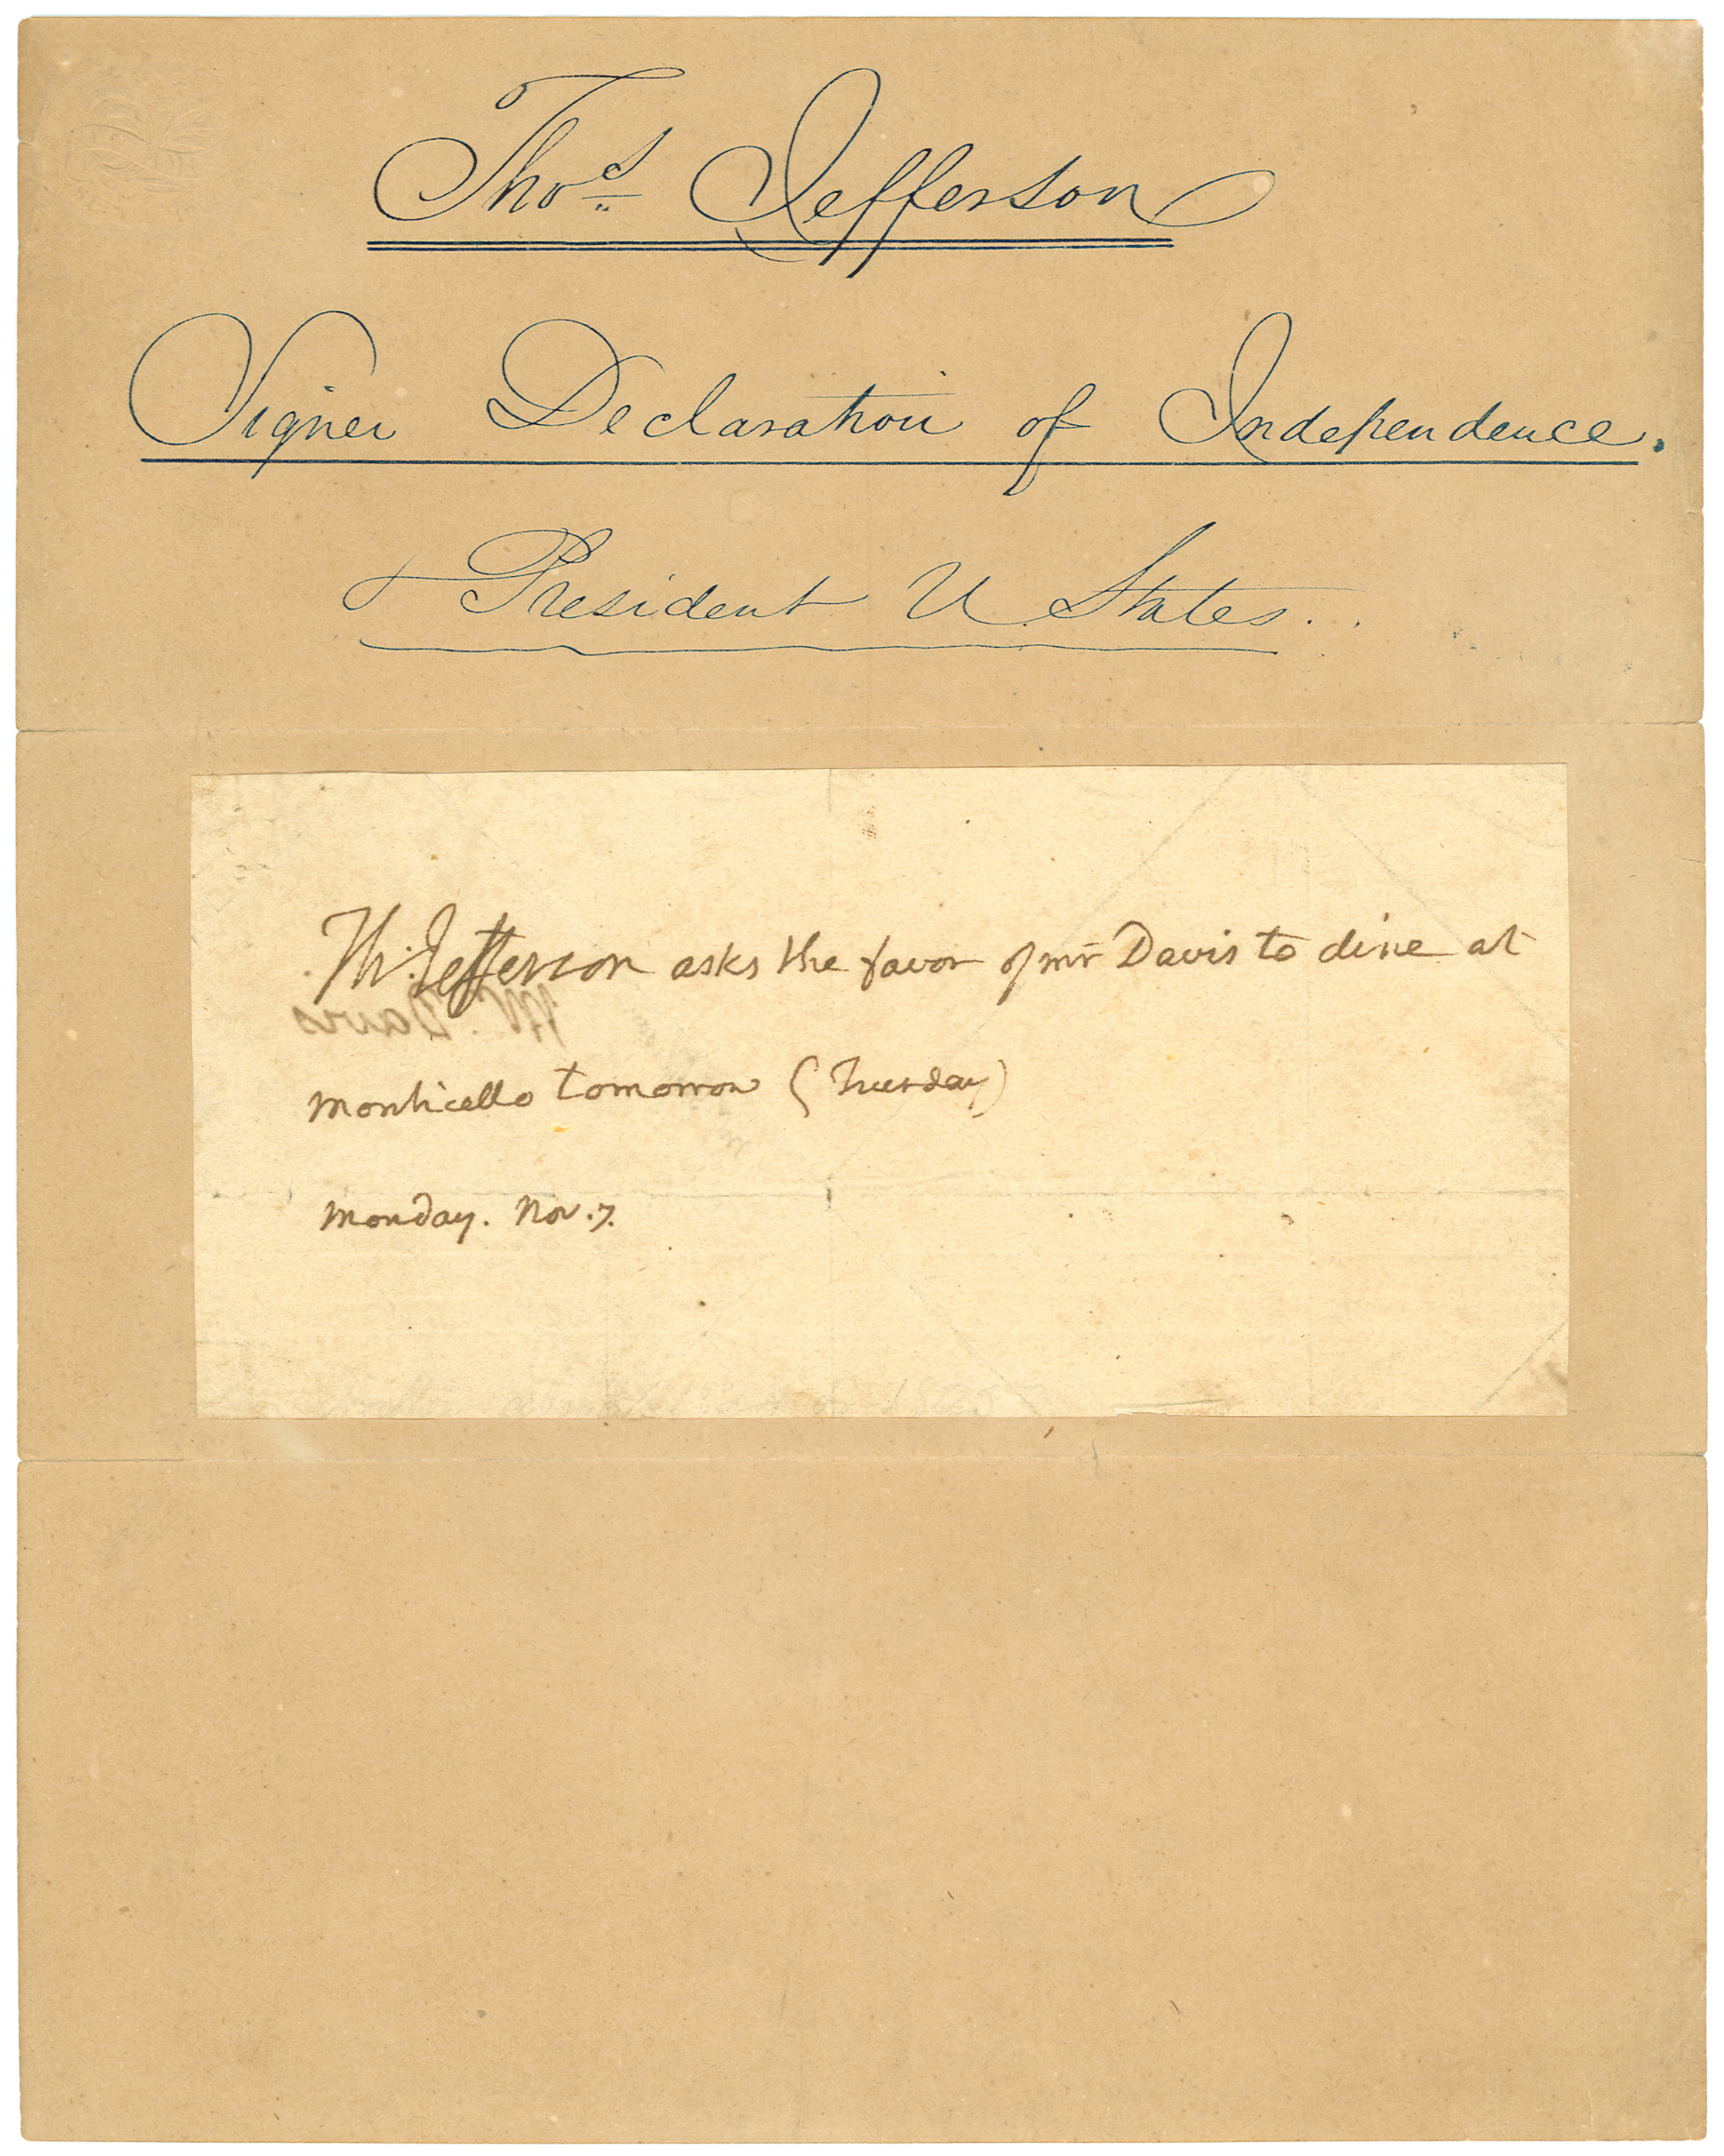 Thos. Jefferson
Signer Declaration of Independence.
& President U. States.
Th: Jefferson asks the favor of mr Davis to dine at
Mr. Davis
Monticello tomorrow (Tuesday)
Monday. Nov. 7.